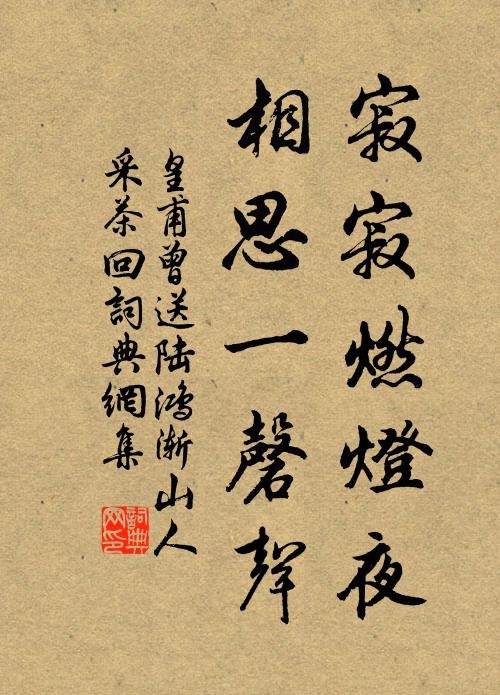 寂寂燃燈夜
相思一磬聲
皇甫曾送陸鴻漸山人
采茶回詞典網集
詞典
网印